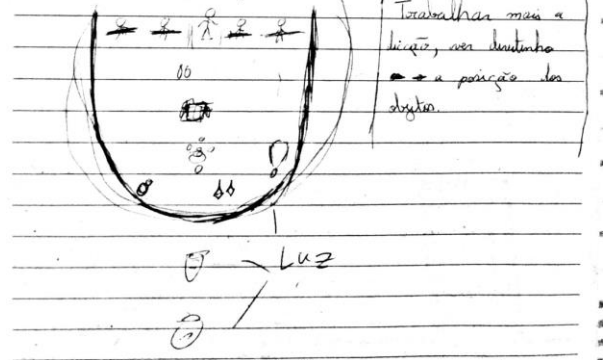 Trabalhar mais a
dicção, ver direitinho
a posição dos
objetos.
Luz